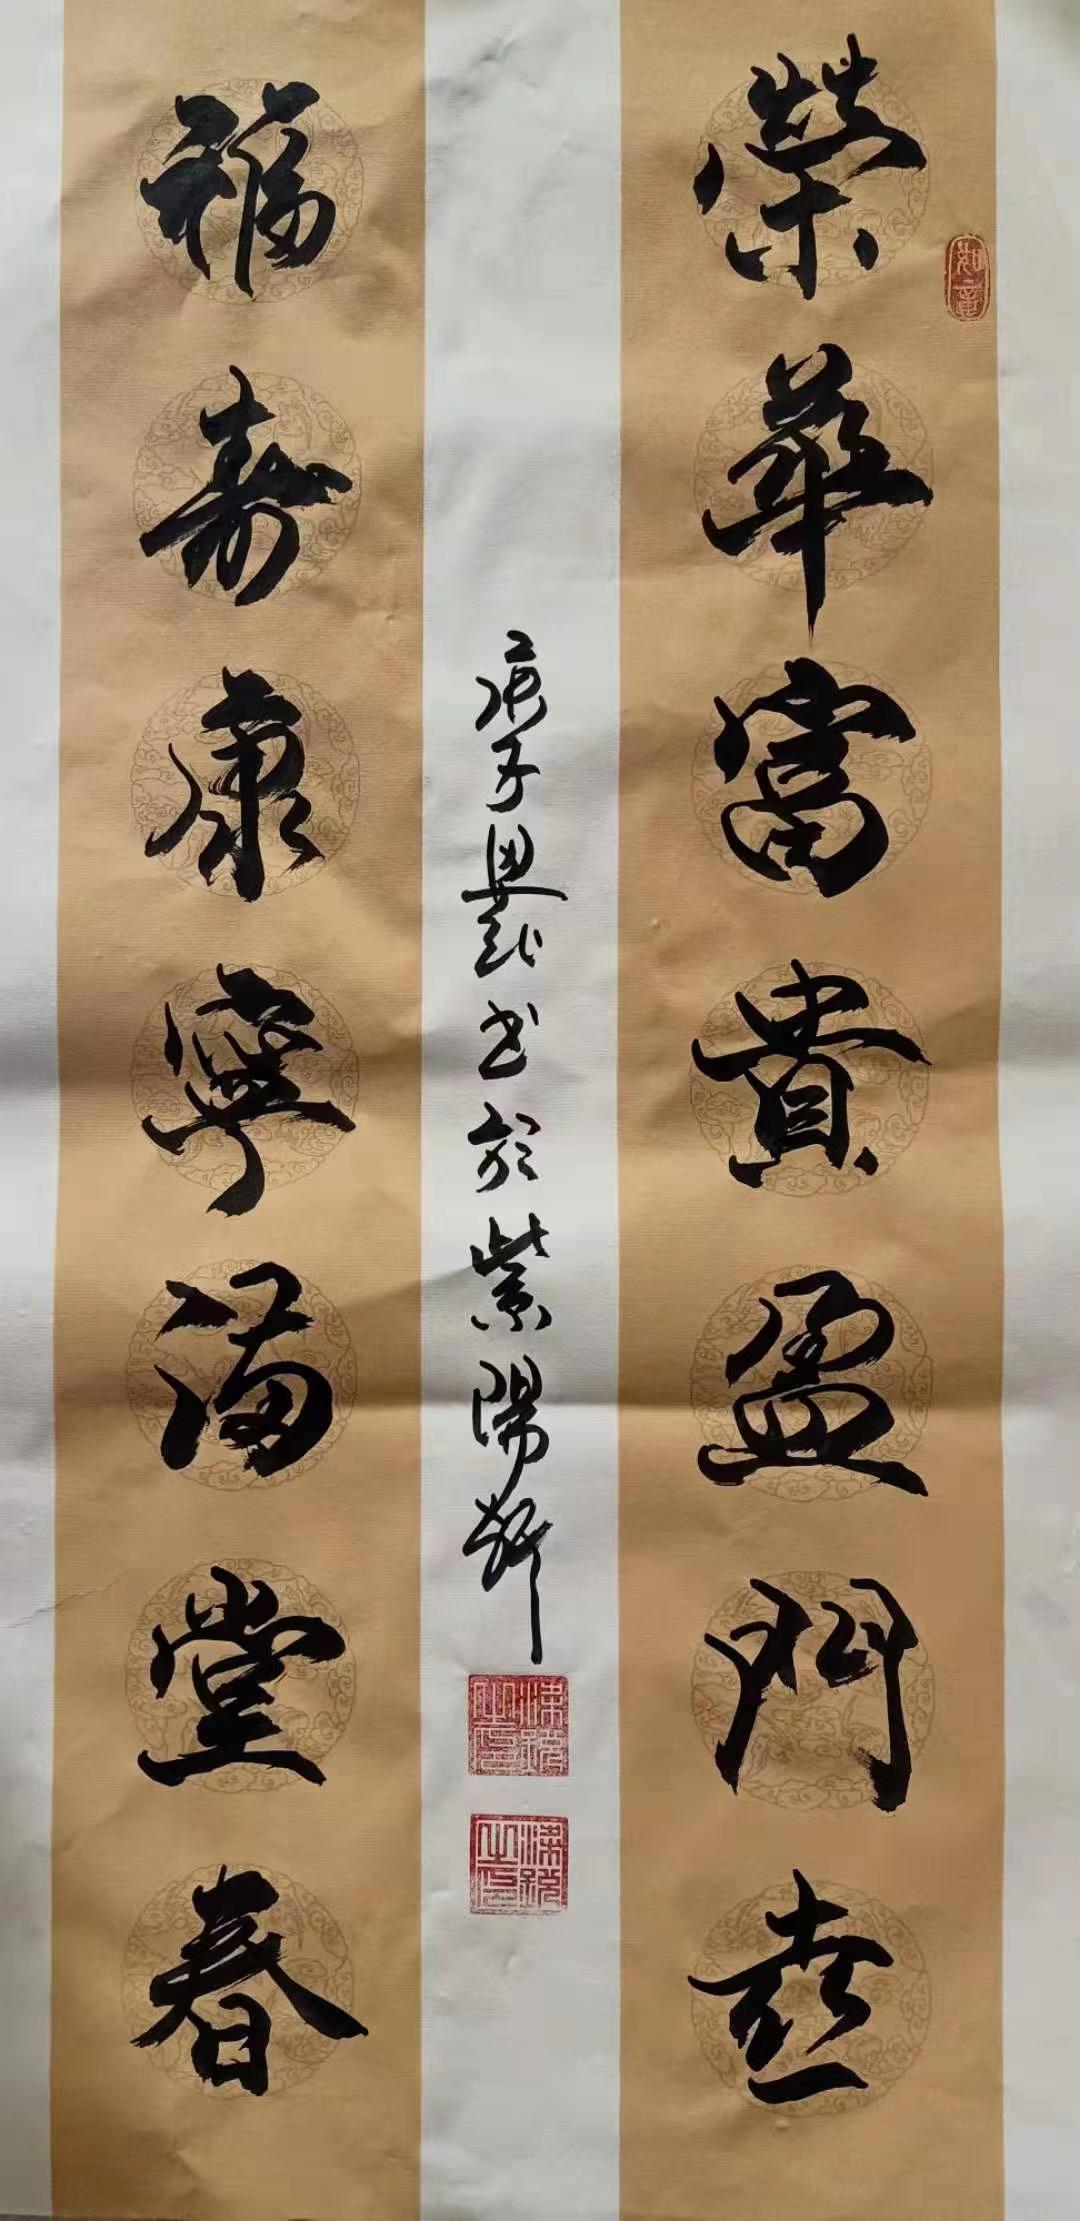 榮華富貴盈門喜
福壽康寧滿堂春
庚子书於紫陽軒
如意